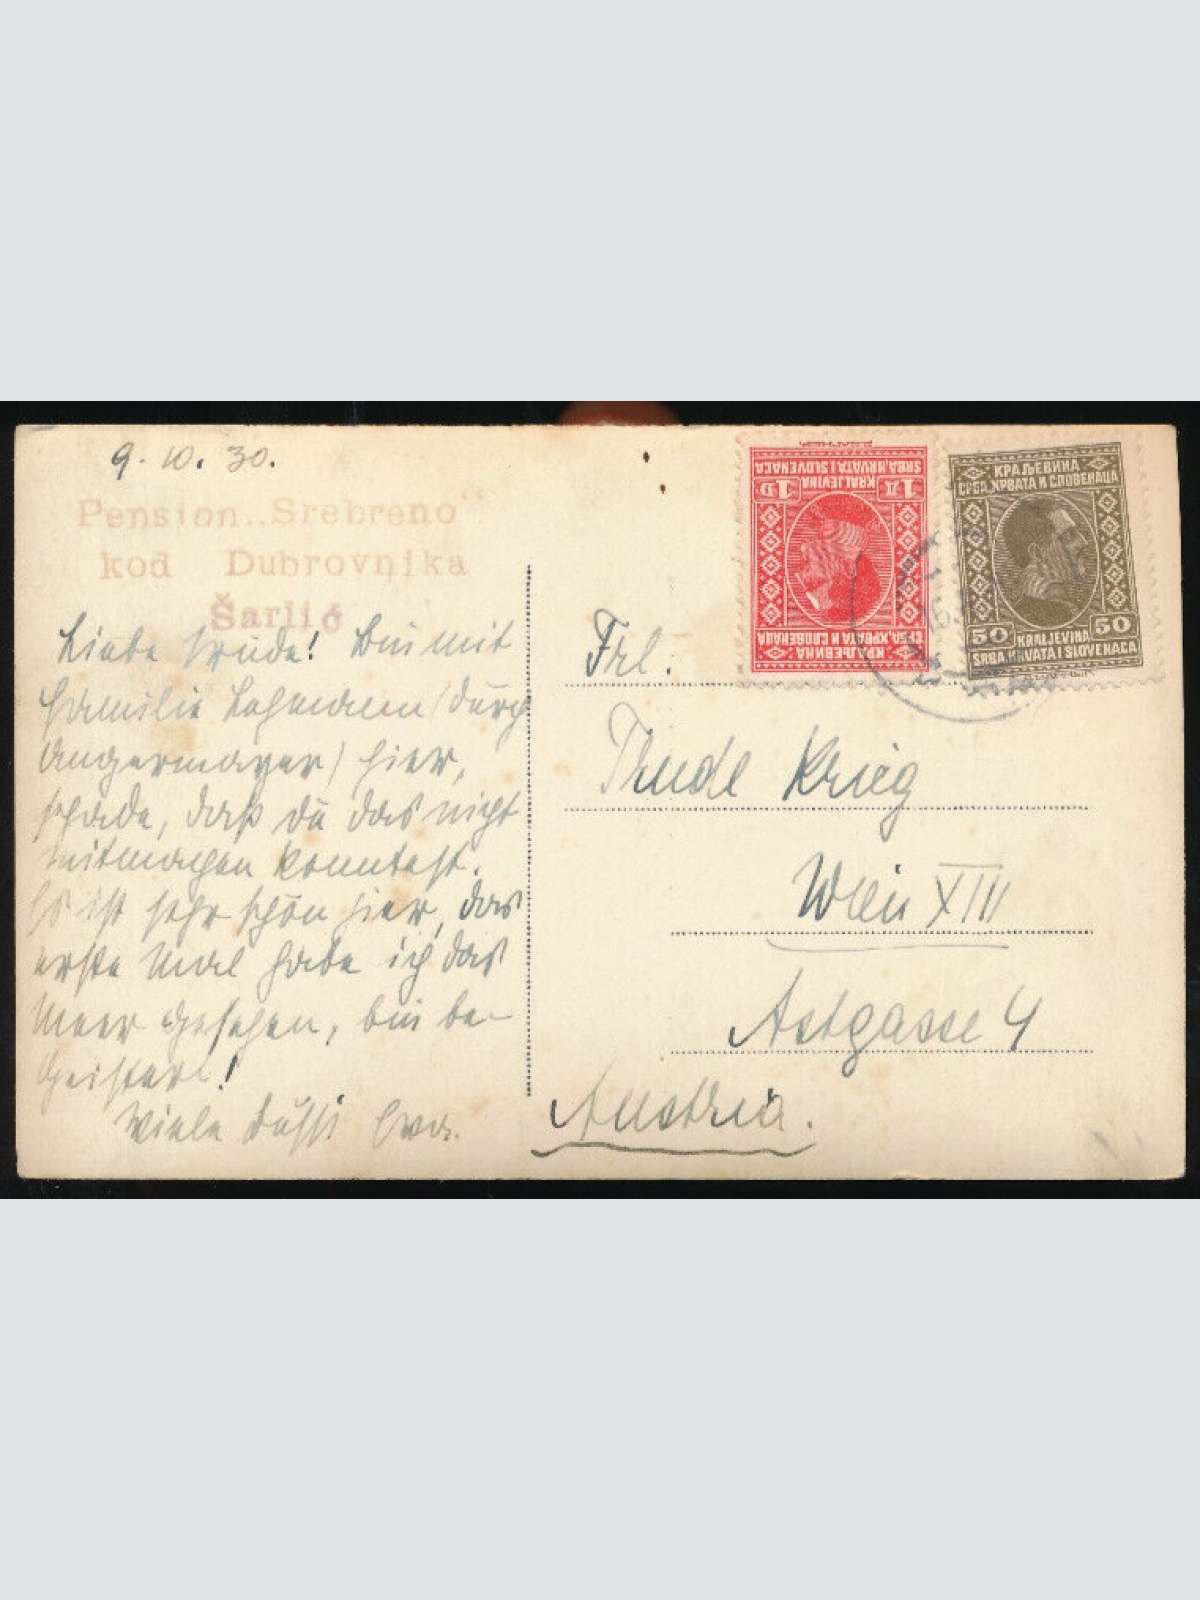 9. 10. 30.
Pension „Srebreno“
kod Dubrovnika
Šarlić
Liebe Trude! Bin mit
Familie Lehmann (durch
Angermayer) hier,
schade, daß du das nicht
mitmachen konntest.
Es ist sehr schön hier, das
erste Mal habe ich das
Meer gesehen, bin be-
geistert!
Viele Bussi
Frl.
Trude Krieg
Wien XIII
Astgasse 4
Austria.
КРАЉЕВИНА
СРБА, ХРВАТА И СЛОВЕНАЦА
1Д 1D
KRALJEVINA
SRBA, HRVATA I SLOVENACA
КРАЉЕВИНА
СРБА, ХРВАТА И СЛОВЕНАЦА
50 KRALJEVINA 50
SRBA, HRVATA I SLOVENACA